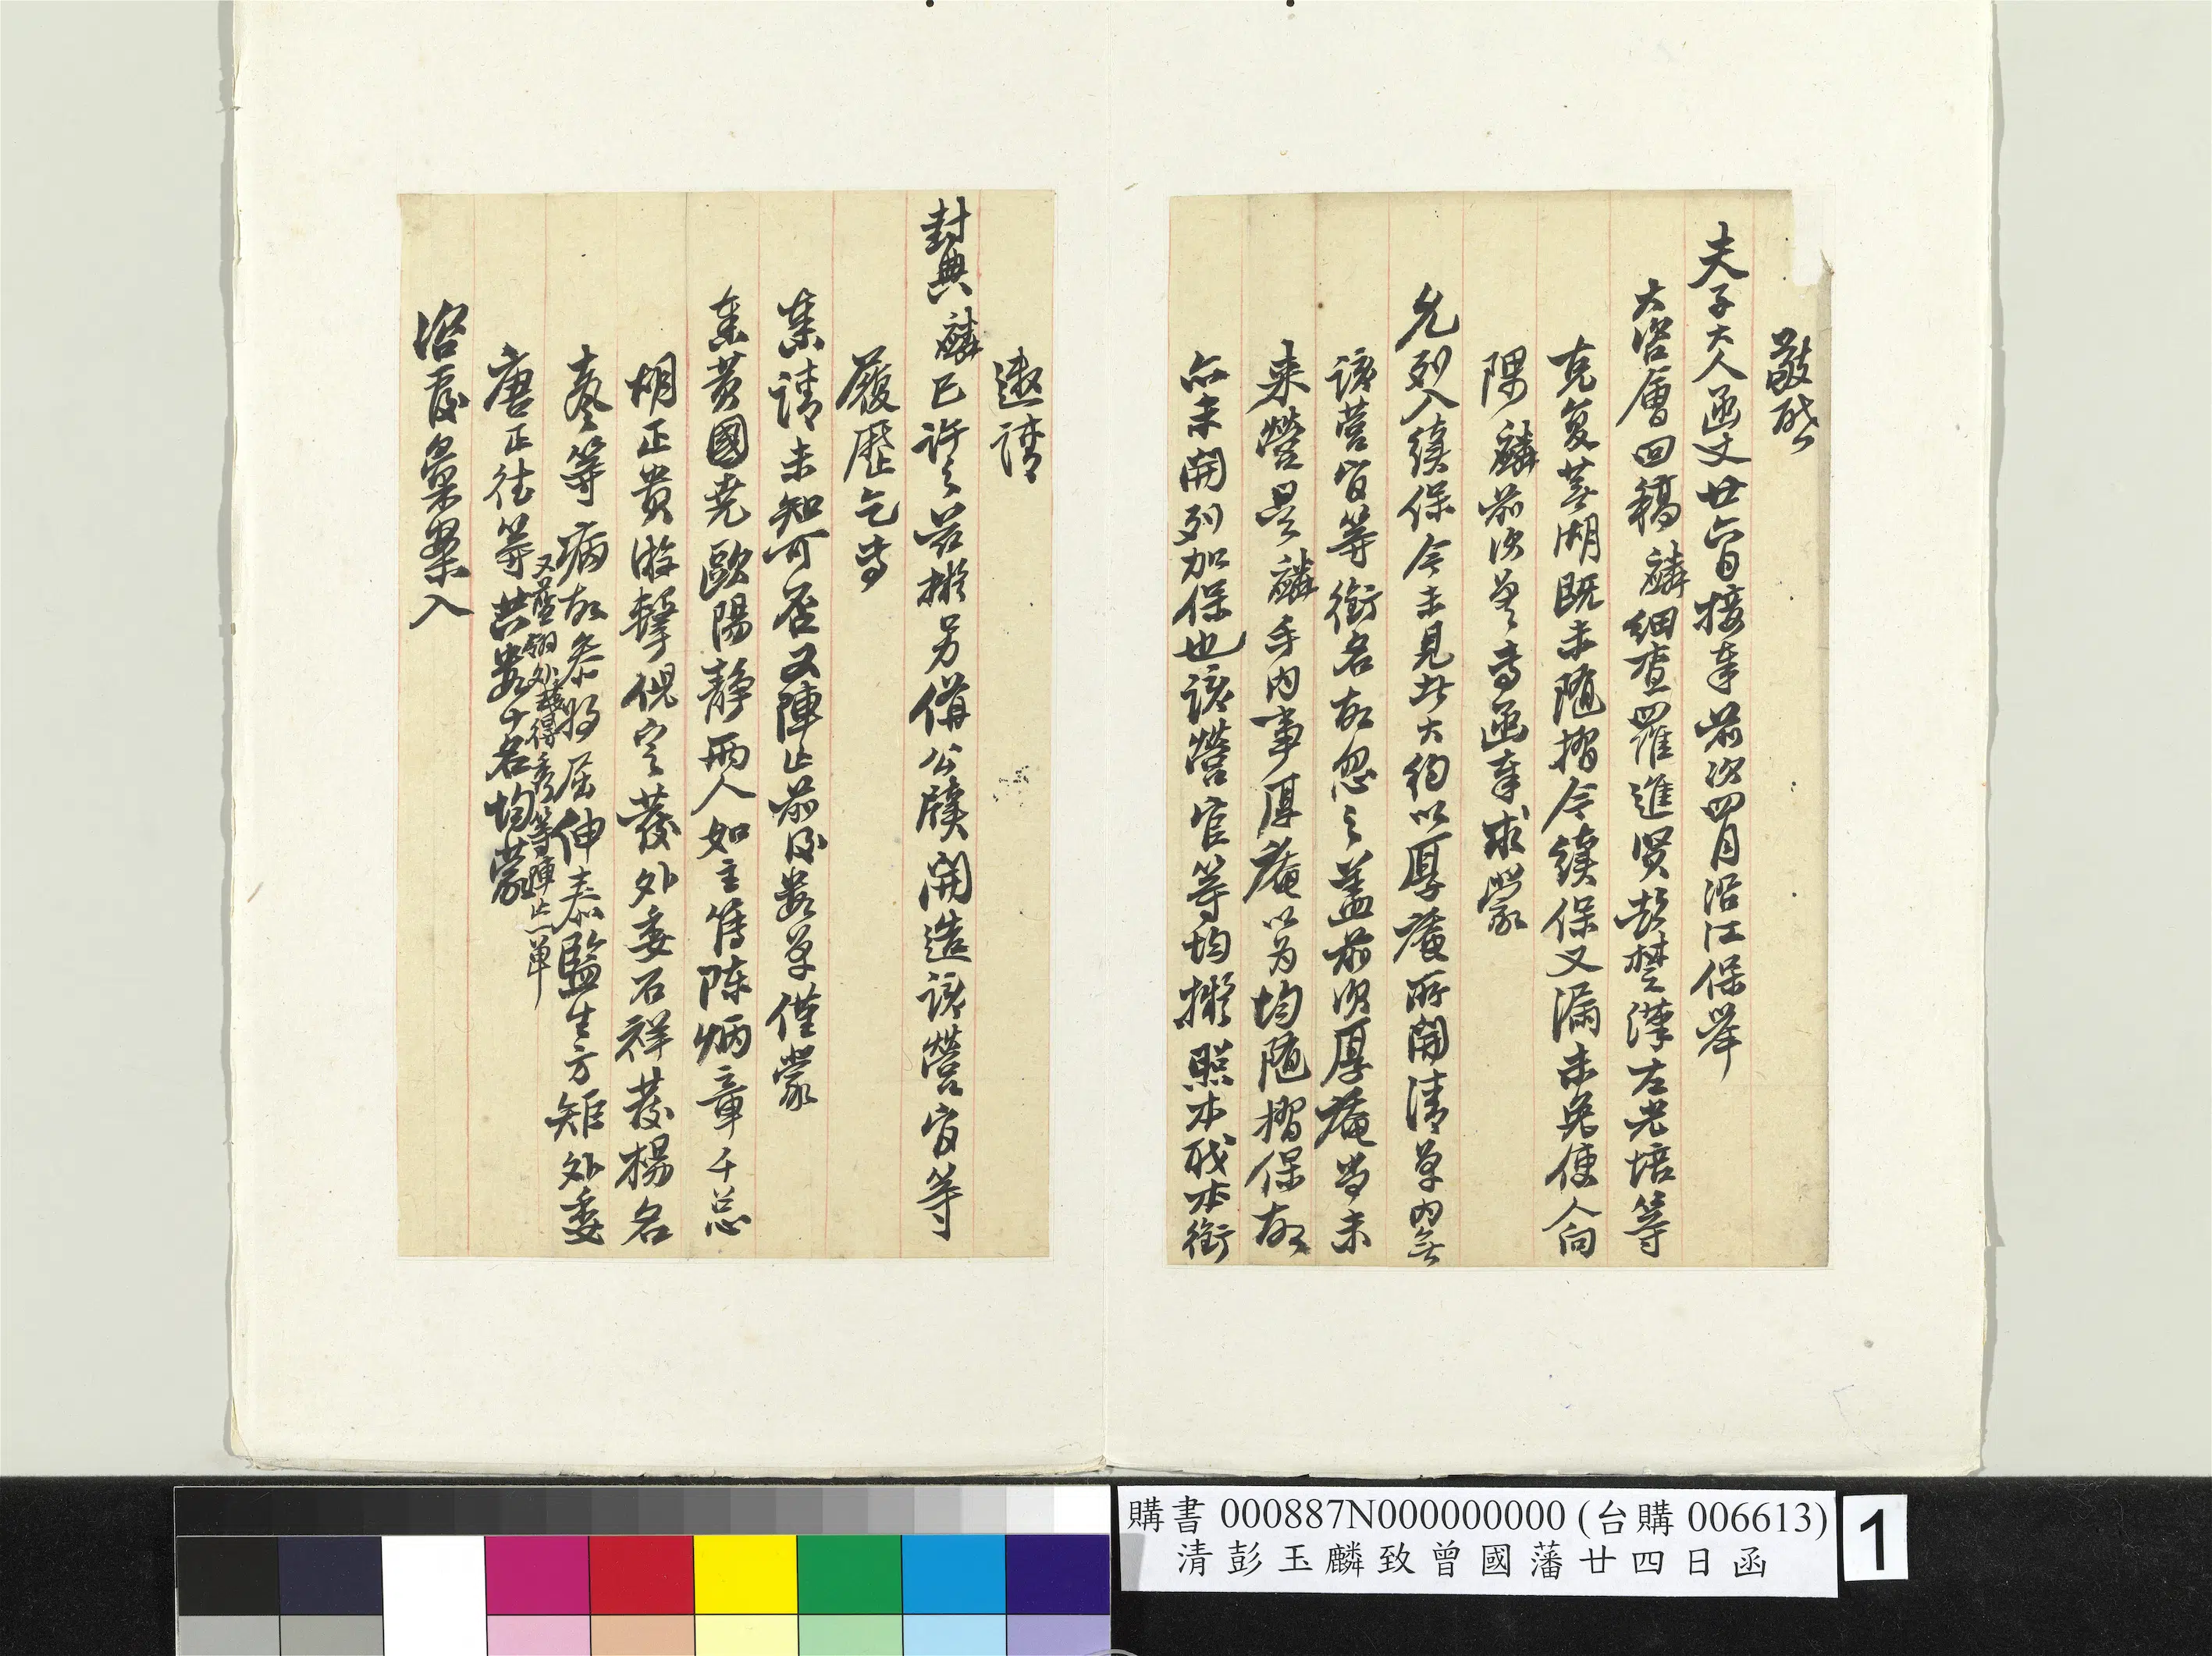 敬啟
夫子大人函丈廿六日接奉前次四月沿江保舉
大咨會回稿麟細查羅進賢彭楚漢左光培等
克復蕪湖既未隨摺今續保又漏未免使人向
隅麟前次單專函奉求蒙
允列入續保今未見此大約以厚菴所開清單內無
該營官等銜名故忽之蓋前次厚菴當未
來營是麟手內事厚菴以為均隨摺保故
亦未開列加保也該營官等均擬照本職本銜
邀請
封典麟已許之茲擬另備公牘開造該營官等
履歷乞專
案請未知可否又陣亡前後數單僅蒙
奏黃國堯歐陽靜兩人如主簿陳炳章千總
胡正貴游擊倪定發外委石祥發楊名
春等病故參將屈伸泰監生方矩外委
又營外等陣亡一單
唐正往等共數十名均蒙
咨度彙案入
購書 000887N000000000 (台購 006613)
清彭玉麟致曾國藩廿四日函
1